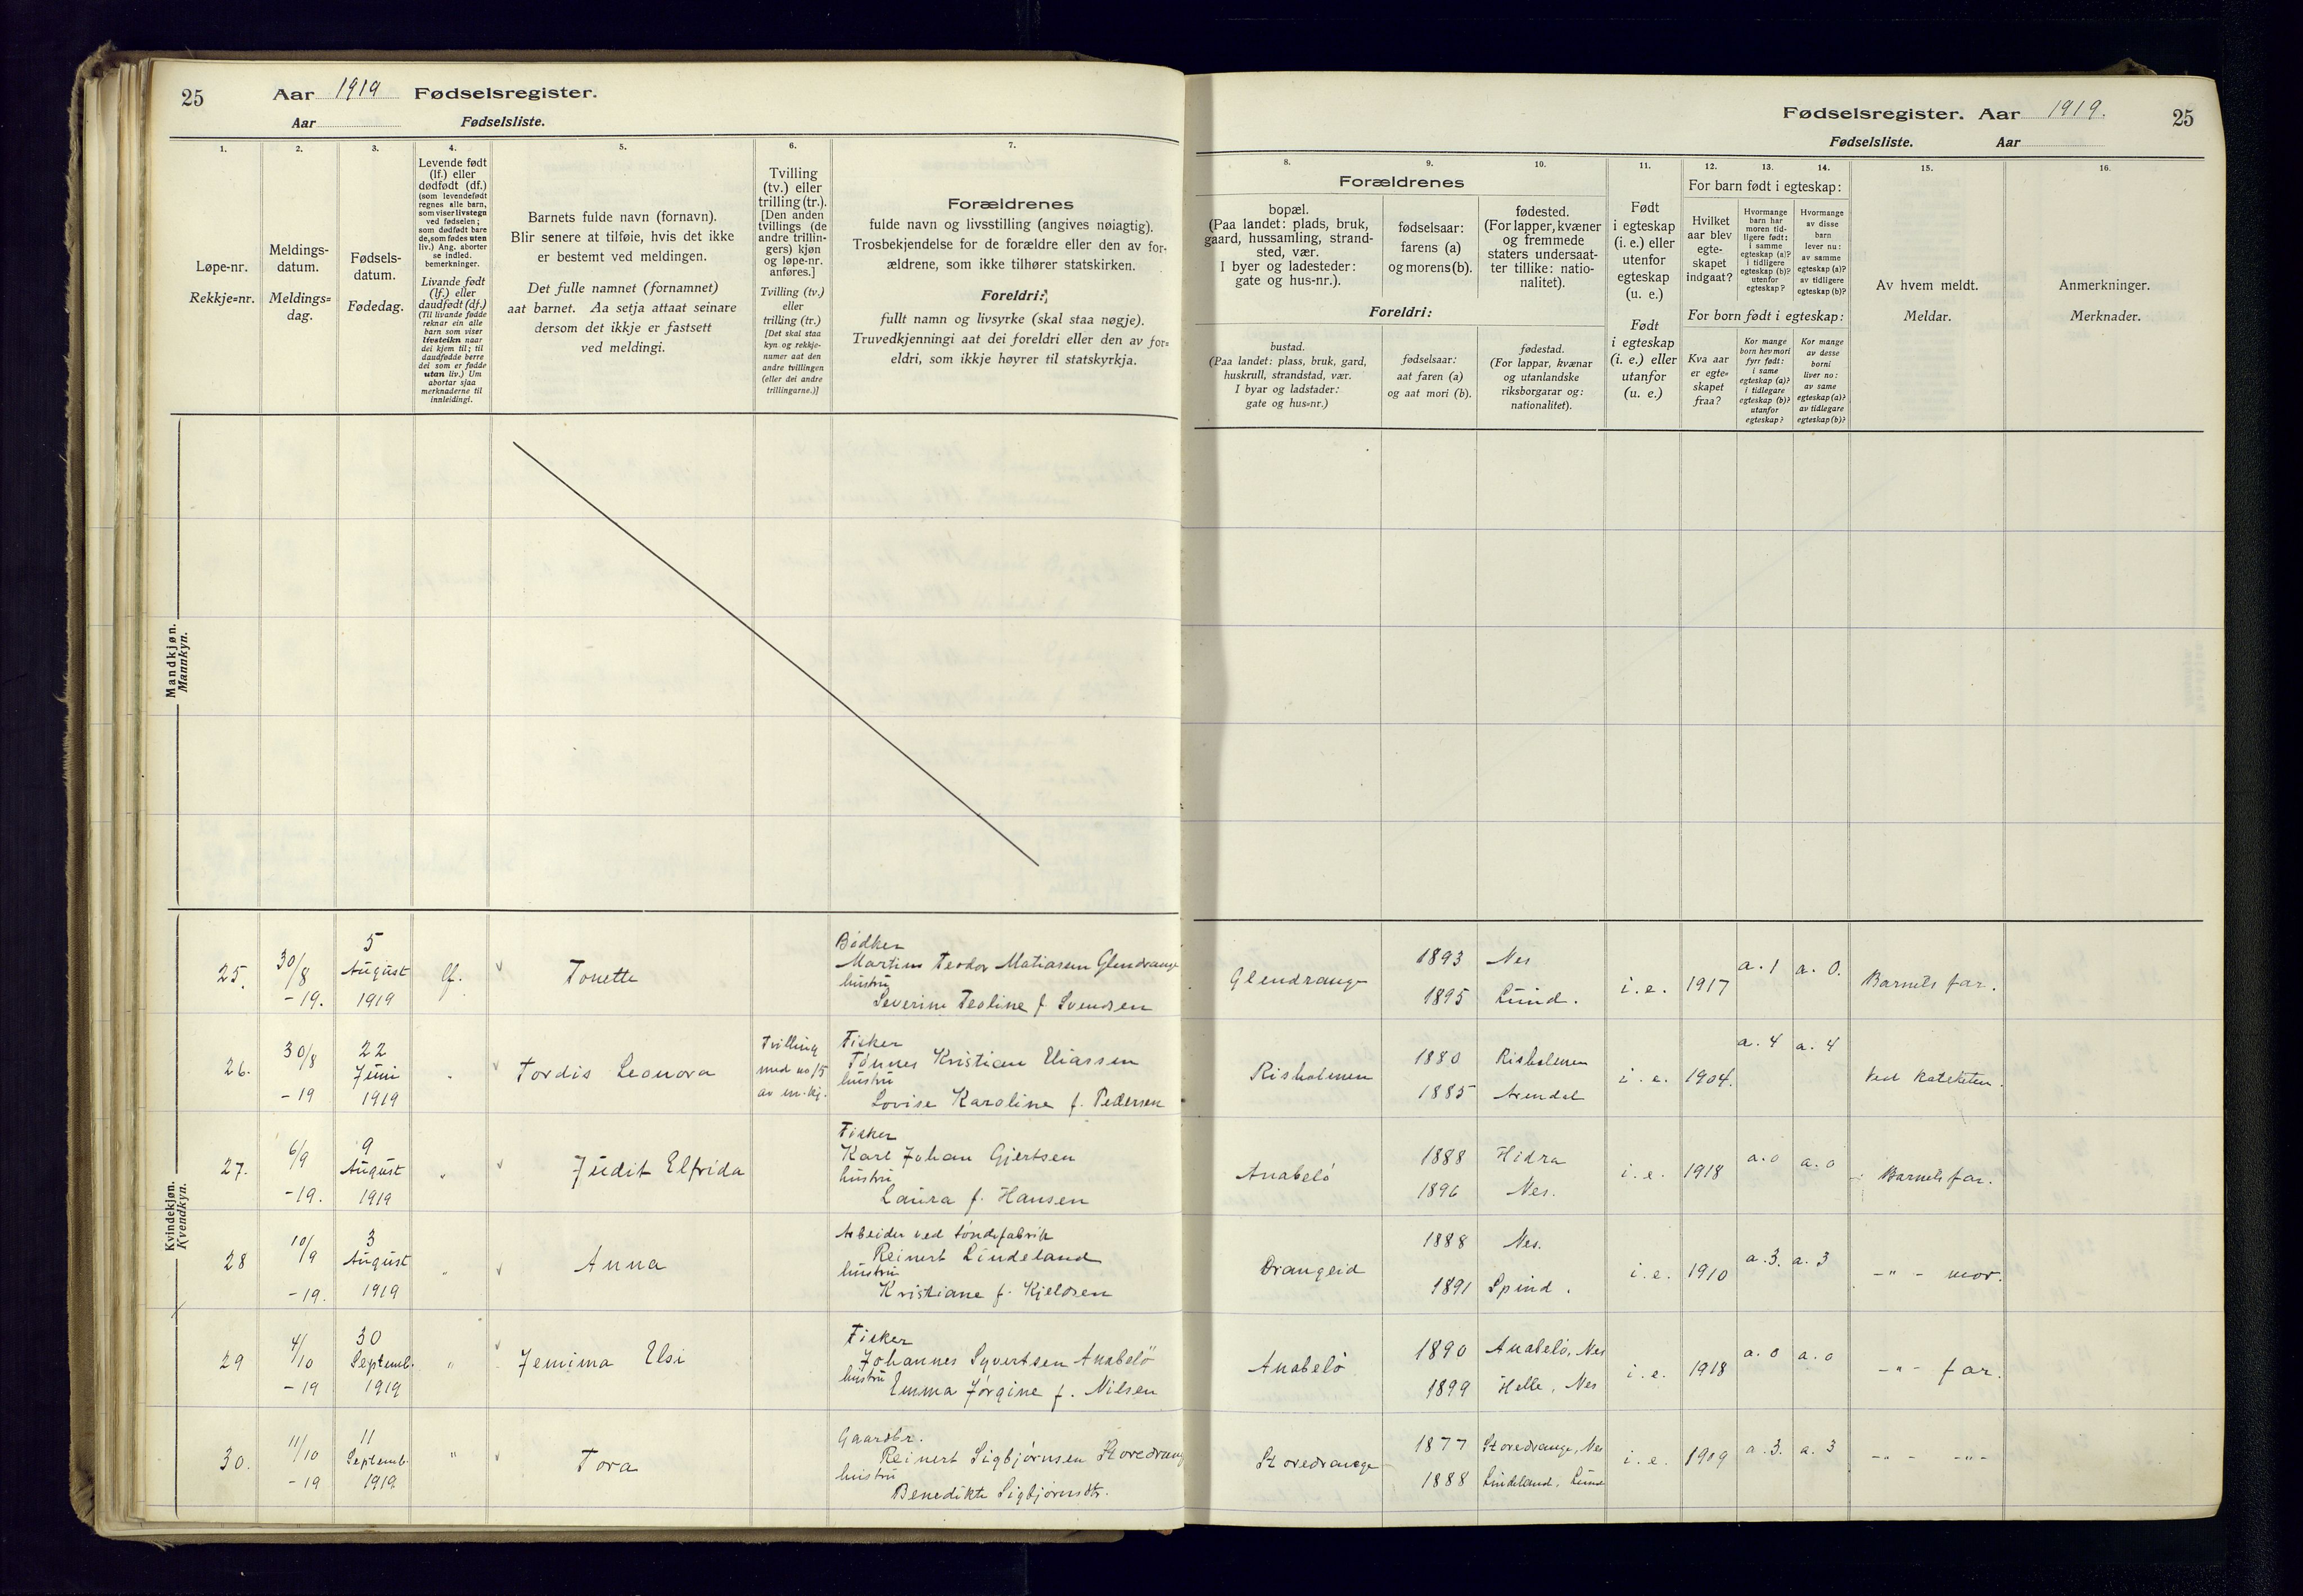 25 Aar 1919 Fødselsregister.
Aar Fødselsliste.
1.
2.
3.
4.
5.
6.
7.
Løpe-nr.
Rekkje=nr.
Meldings-
datum.
Meldings=
dag.
Fødsels-
datum.
Fødedag.
Levende født
(lf.) eller
dødfødt (df.)
(som levendefødt
regnes alle barn,
som viser livstegn
ved fødselen;
som dødfødt bare
de, som fødes uten
liv.) Ang. aborter
se indled.
bemerkninger.
Livande født
(lf.) eller
daudfødt (df.)
(Til livande fødde
reknar ein alle
born som viser
livsteikn naar
dei kjem til; til
daudfødde berre
dei som er fødde
utan liv.) Um
abortar sjaa
merknaderne til
innleidingi.
Barnets fulde navn (fornavn).
Blir senere at tilføie, hvis det ikke
er bestemt ved meldingen.
Det fulle namnet (fornamnet)
aat barnet. Aa setja attaat seinare
dersom det ikkje er fastsett
ved meldingi.
Tvilling
(tv.) eller
trilling (tr.).
[Den anden
tvillings (de
andre trillin-
gers) kjøn
og løpe-nr.
anføres.]
Tvilling (tv.)
eller
trilling (tr.)
[Det skal staa
kyn og rekkje-
numer aat den
andre tvillingen
(eller dei andre
trillingarne.)]
Forældrenes
fulde navn og livsstilling (angives nøiagtig).
Trosbekjendelse for de forældre eller den av for-
ældrene, som ikke tilhører statskirken.
Foreldri:
fullt namn og livsyrke (skal staa nøgje).
Truvedkjenningi aat dei foreldri eller den av for=
eldri, som ikkje høyrer til statskyrkja.
Mandkjøn.
Mannkyn.
Kvindekjøn.
Kvendkyn.
25.
30/8
-19.
5
August
1919
lf.
Tonette
Bødker
Martin Teodor Matiasen Glendrange
hustru
Severine Teoline f Svendsen
26.
30/8
-19
22
Juni
1919
"
Tordis Leonora
Tvilling
med no 15
av m. kj.
Fisker
Tønnes Kristian Eliassen
hustru
Lovise Karoline f. Pedersen
27.
6/9
-19.
9
August
1919
"
Judit Elfrida
Fisker
Karl Johan Gjertsen
hustru
Laura f. Hansen
28
10/9
-19.
3
August
1919
"
Anna
Arbeider ved tøndefabrik
Reinert Lindeland
hustru
Kristiane f. Kjeldsen
29
4/10
-19
30
Septemb.
1919
"
Jemima Elsi
Fisker
Johannes Syvertsen Anabelø
hustru
Emma Jørgine f. Nilsen
30.
11/10
-19
11
Septemb.
1919
"
Tora
Gaardbr.
Reinert Sigbjørnsen Storedrang
hustru
Benedikte Sigbjørnsdtr.
Fødselsregister. Aar 1919. 25
Fødselsliste. Aar
8.
9.
10.
11.
12.
13.
14.
15.
16.
Forældrenes
bopæl.
(Paa landet: plads, bruk,
gaard, hussamling, strand-
sted, vær.
I byer og ladesteder:
gate og hus-nr.).
fødselsaar:
farens (a)
og morens (b).
fødested.
(For lapper, kvæner
og fremmede
staters undersaat-
ter tillike: natio-
nalitet).
Foreldri:
bustad.
(Paa landet: plass, bruk, gard,
huskrull, strandstad, vær.
I byar og ladstader:
gate og hus=nr.)
fødselsaar:
aat faren (a)
og aat mori (b).
fødestad.
(For lappar, kvænar
og utanlandske
riksborgarar og:
nationalitet).
Født
i egteskap
(i. e.) eller
utenfor
egteskap
(u. e.)
Født
i egteskap
(i. e.) eller
utanfor
(u. e.)
For barn født i egteskap:
Hvilket
aar blev
egte-
skapet
indgaat?
Hvormange
barn har
moren tid-
ligere født:
i samme
egteskap (a)?
i tidligere
egteskap (b)?
utenfor
egteskap?
Hvormange
av disse
barn
lever nu:
av samme
egteskap (a)?
av tidligere
egteskap (b)?
For born født i egteskap:
Kva aar
er egte=
skapet
fraa?
Kor mange
born hev mori
fyrr født:
i same
egteskap (a)?
i tidlegare
egteskap (b)?
utanfor
egteskap?
Kor mange
av desse
borni
liver no:
av same
egteskap (a)?
av tidlegare
egteskap (b)?
Av hvem meldt.
Meldar.
Anmerkninger.
Merknader.
Glendrange
1893 Nes
1895 Lund.
i. e. 1917 a. 1 a. 0. Barnets far.
Risholmen
1880 Risholmen
1885 Arendal
i. e. 1904. a. 4 a. 4 Ved Kateketen.
Anabelø
1888 Hidra
1896 Nes.
i. e. 1918 a. 0 a. 0 Barnets far.
Drangeid
1888 Nes.
1891 Spind.
i. e. 1910 a. 3. a. 3 -"- mor.
Anabelø
1890 Anabelø, Nes
1899 Helle, Nes
i. e. 1918 a. 0 a. 0 -"- far.
Storedrange
1877 Storedrange, Nes
1888 Lindeland, Lund
i. e. 1909 a. 3. a. 3 -"- -"-